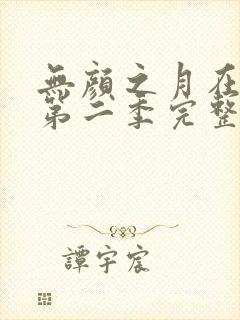 無顏之月在
第二季完整
譚宇宸